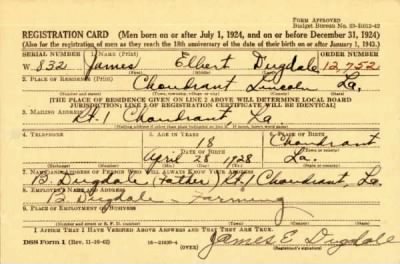 FORM APPROVED
Budget Bureau No. 33-R012-42
REGISTRATION CARD (Men born on or after July 1, 1924, and on or before December 31, 1924)
(Also for the registration of men as they reach the 18th anniversary of the date of their birth on or after January 1, 1943.)
SERIAL NUMBER 1. NAME (Print) ORDER NUMBER
W 832 James Elbert Dugdale 12,752
2. PLACE OF RESIDENCE (Print)
Choudrant Lincoln La.
[THE PLACE OF RESIDENCE GIVEN ON LINE 2 ABOVE WILL DETERMINE LOCAL BOARD
JURISDICTION; LINE 2 OF REGISTRATION CERTIFICATE WILL BE IDENTICAL]
3. MAILING ADDRESS
Rt. 1 Choudrant, La
4. TELEPHONE 5. AGE IN YEARS 6. PLACE OF BIRTH
18 Choudrant
DATE OF BIRTH
April 28 1928 La.
7. NAME AND ADDRESS OF PERSON WHO WILL ALWAYS KNOW YOUR ADDRESS
B Dugdale (Father) Rt 1 Choudrant, La.
8. EMPLOYER'S NAME AND ADDRESS
B Dugdale - Farming
9. PLACE OF EMPLOYMENT OR BUSINESS
I AFFIRM THAT I HAVE VERIFIED ABOVE ANSWERS AND THAT THEY ARE TRUE.
DSS Form 1 (Rev. 11-16-42) (OVER) James E Dugdale